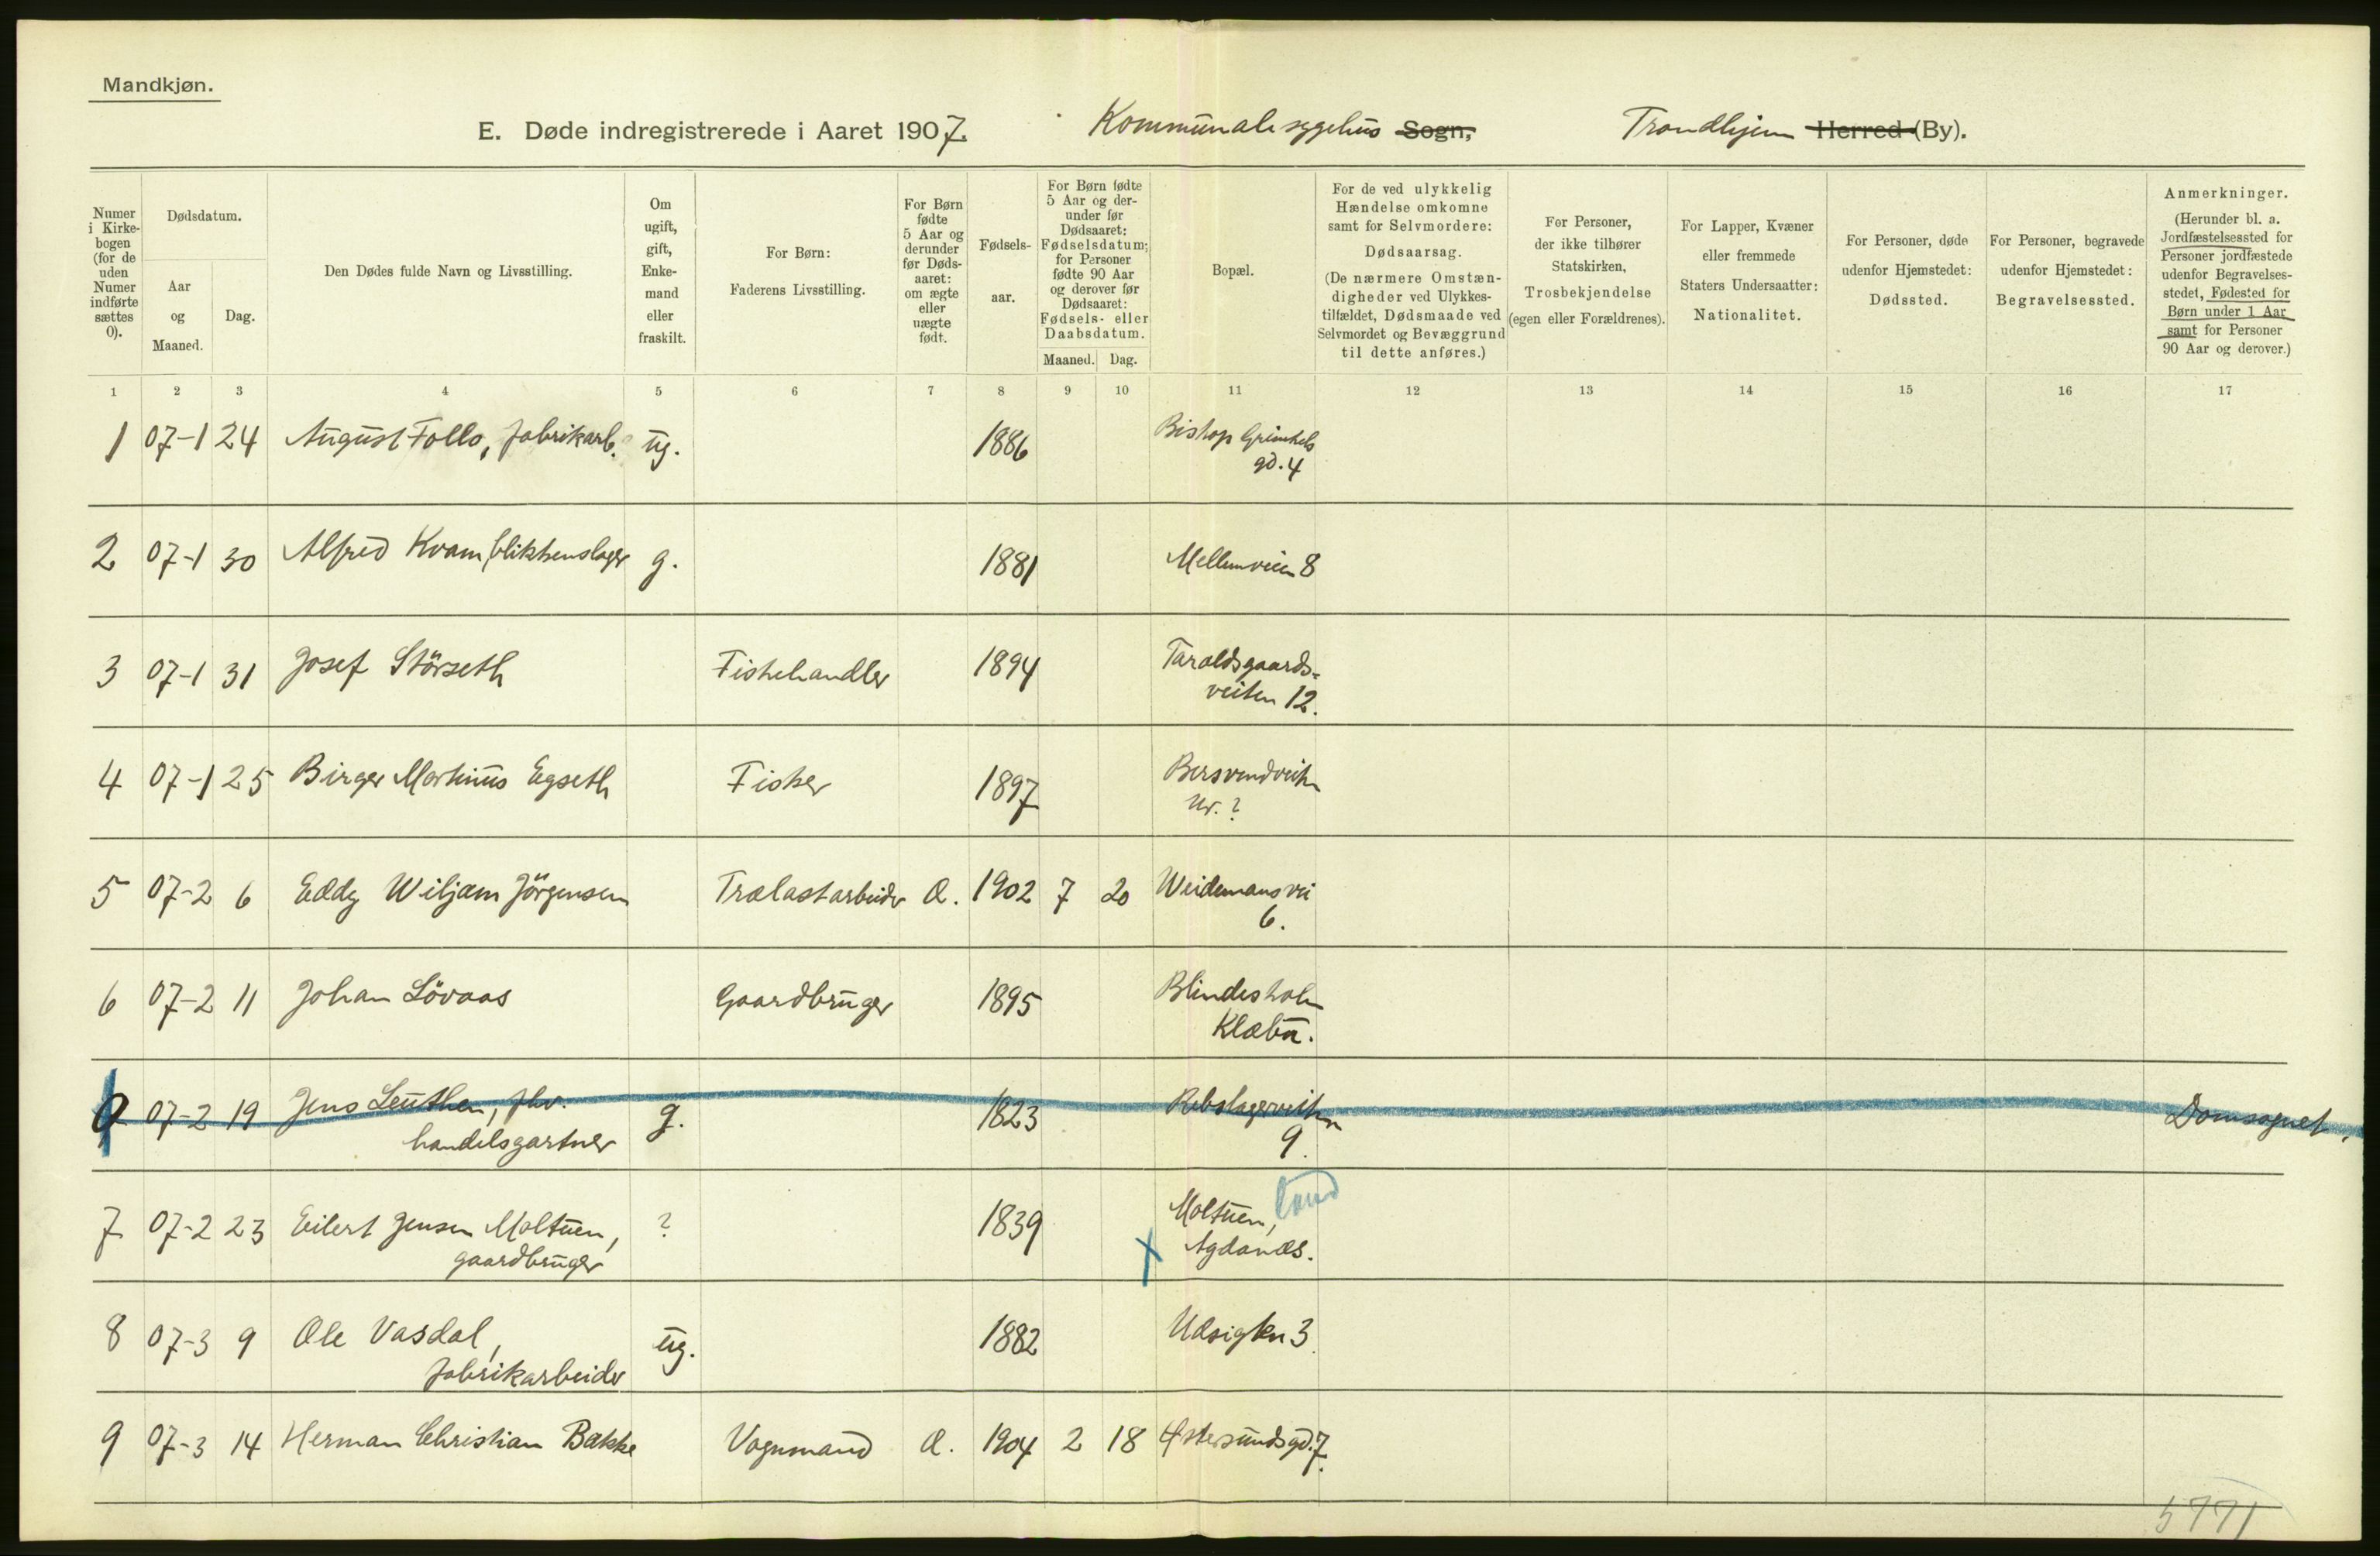 Mandkjøn.
E. Døde indregistrerede i Aaret 1907. Kommunale sygehus Sogn, Trondhjem Herred (By).
Numer i Kirkebogen (for de uden Numer indførte sættes 0).
Dødsdatum.
Aar og Maaned.
Dag.
Den Dødes fulde Navn og Livsstilling.
Om ugift, gift, Enkemand eller fraskilt.
For Børn: Faderens Livsstilling.
For Børn fødte 5 Aar og derunder før Dødsaaret: om ægte eller uægte født.
Fødselsaar.
For Børn fødte 5 Aar og derunder før Dødsaaret: Fødselsdatum; for Personer fødte 90 Aar og derover før Dødsaaret: Fødsels- eller Daabsdatum.
Maaned. Dag.
Bopæl.
For de ved ulykkelig Hændelse omkomne samt for Selvmordere: Dødsaarsag. (De nærmere Omstændigheder ved Ulykkestilfældet, Dødsmaade ved Selvmordet og Bevæggrund til dette anføres.)
For Personer, der ikke tilhører Statskirken, Trosbekjendelse (egen eller Forældrenes).
For Lapper, Kvæner eller fremmede Staters Undersaatter: Nationalitet.
For Personer, døde udenfor Hjemstedet: Dødssted.
For Personer, begravede udenfor Hjemstedet: Begravelsessted.
Anmerkninger. (Herunder bl. a. Jordfæstelsessted for Personer jordfæstede udenfor Begravelsesstedet, Fødested for Børn under 1 Aar samt for Personer 90 Aar og derover.)
1 2 3 4 5 6 7 8 9 10 11 12 13 14 15 16 17
1 07-1 24 August Follo, fabrikarb. ug. 1886 Bishop Grimkels gd. 4
2 07-1 30 Alfred Kvam, blikkenslager g. 1881 Mellemveien 8
3 07-1 31 Josef Störseth Fiskehandler 1894 Taraldsgaards-
veiten 12.
4 07-1 25 Birger Martinus Egseth Fisker 1897 Bersvendveiten
Nr. ?
5 07-2 6 Eddy Wiljam Jörgensen Trælastarbeider Æ. 1902 7 20 Weidemans vei
6.
6 07-2 11 Johan Lövaas Gaardbruger 1895
Klæbu.
0 07-2 19 Jens Leuthen, fhv. g. 1823 Rebslagerveiten Domsognet.
handelsgartner 9.
7 07-2 23 Eilert Jensen Moltuen, ? 1839 Moltuen, land
gaardbruger Agdanæs.
8 07-3 9 Ole Vasdal, ug. 1882 Udsigten 3
fabrikarbeider
9 07-3 14 Herman Christian Bakke Vognmand Æ. 1904 2 18 Østersundsgd. 7.
5771